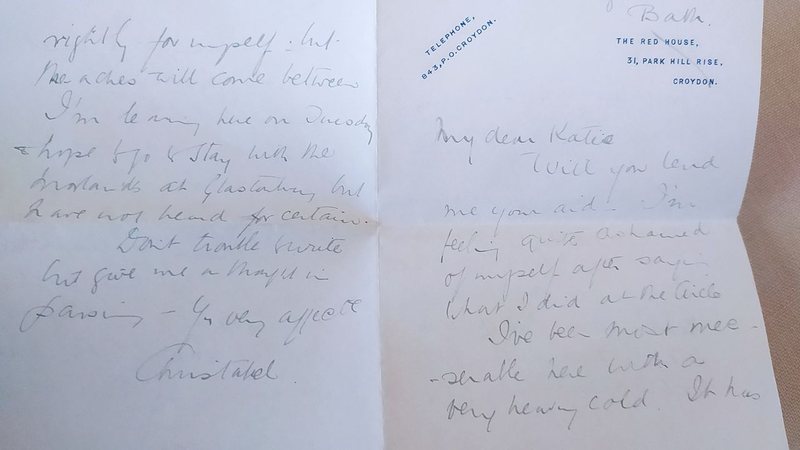 rightly for myself: but
the aches will come between
I'm leaving here on Tuesday
& hope to go & stay with the
at Glastonbury but
have not heard for certain.
Don't trouble to write
but give me a thought in
passing – Yr very affecte
Christabel.
TELEPHONE,
843, P.O. CROYDON.
Bath.
THE RED HOUSE,
31, PARK HILL RISE,
CROYDON.
My dear Katie
Will you lend
me your aid. I'm
feeling quite ashamed
of myself after saying
what I did at the Circle
I've been most mee-
-serable here with a
very heavy cold. It has